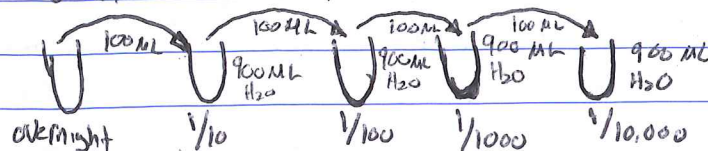 100 ML 100 ML 100 ML 100 ML
900 ML H₂O 900 ML H₂O 900 ML H₂O 900 ML H₂O
overnight 1/10 1/100 1/1000 1/10,000